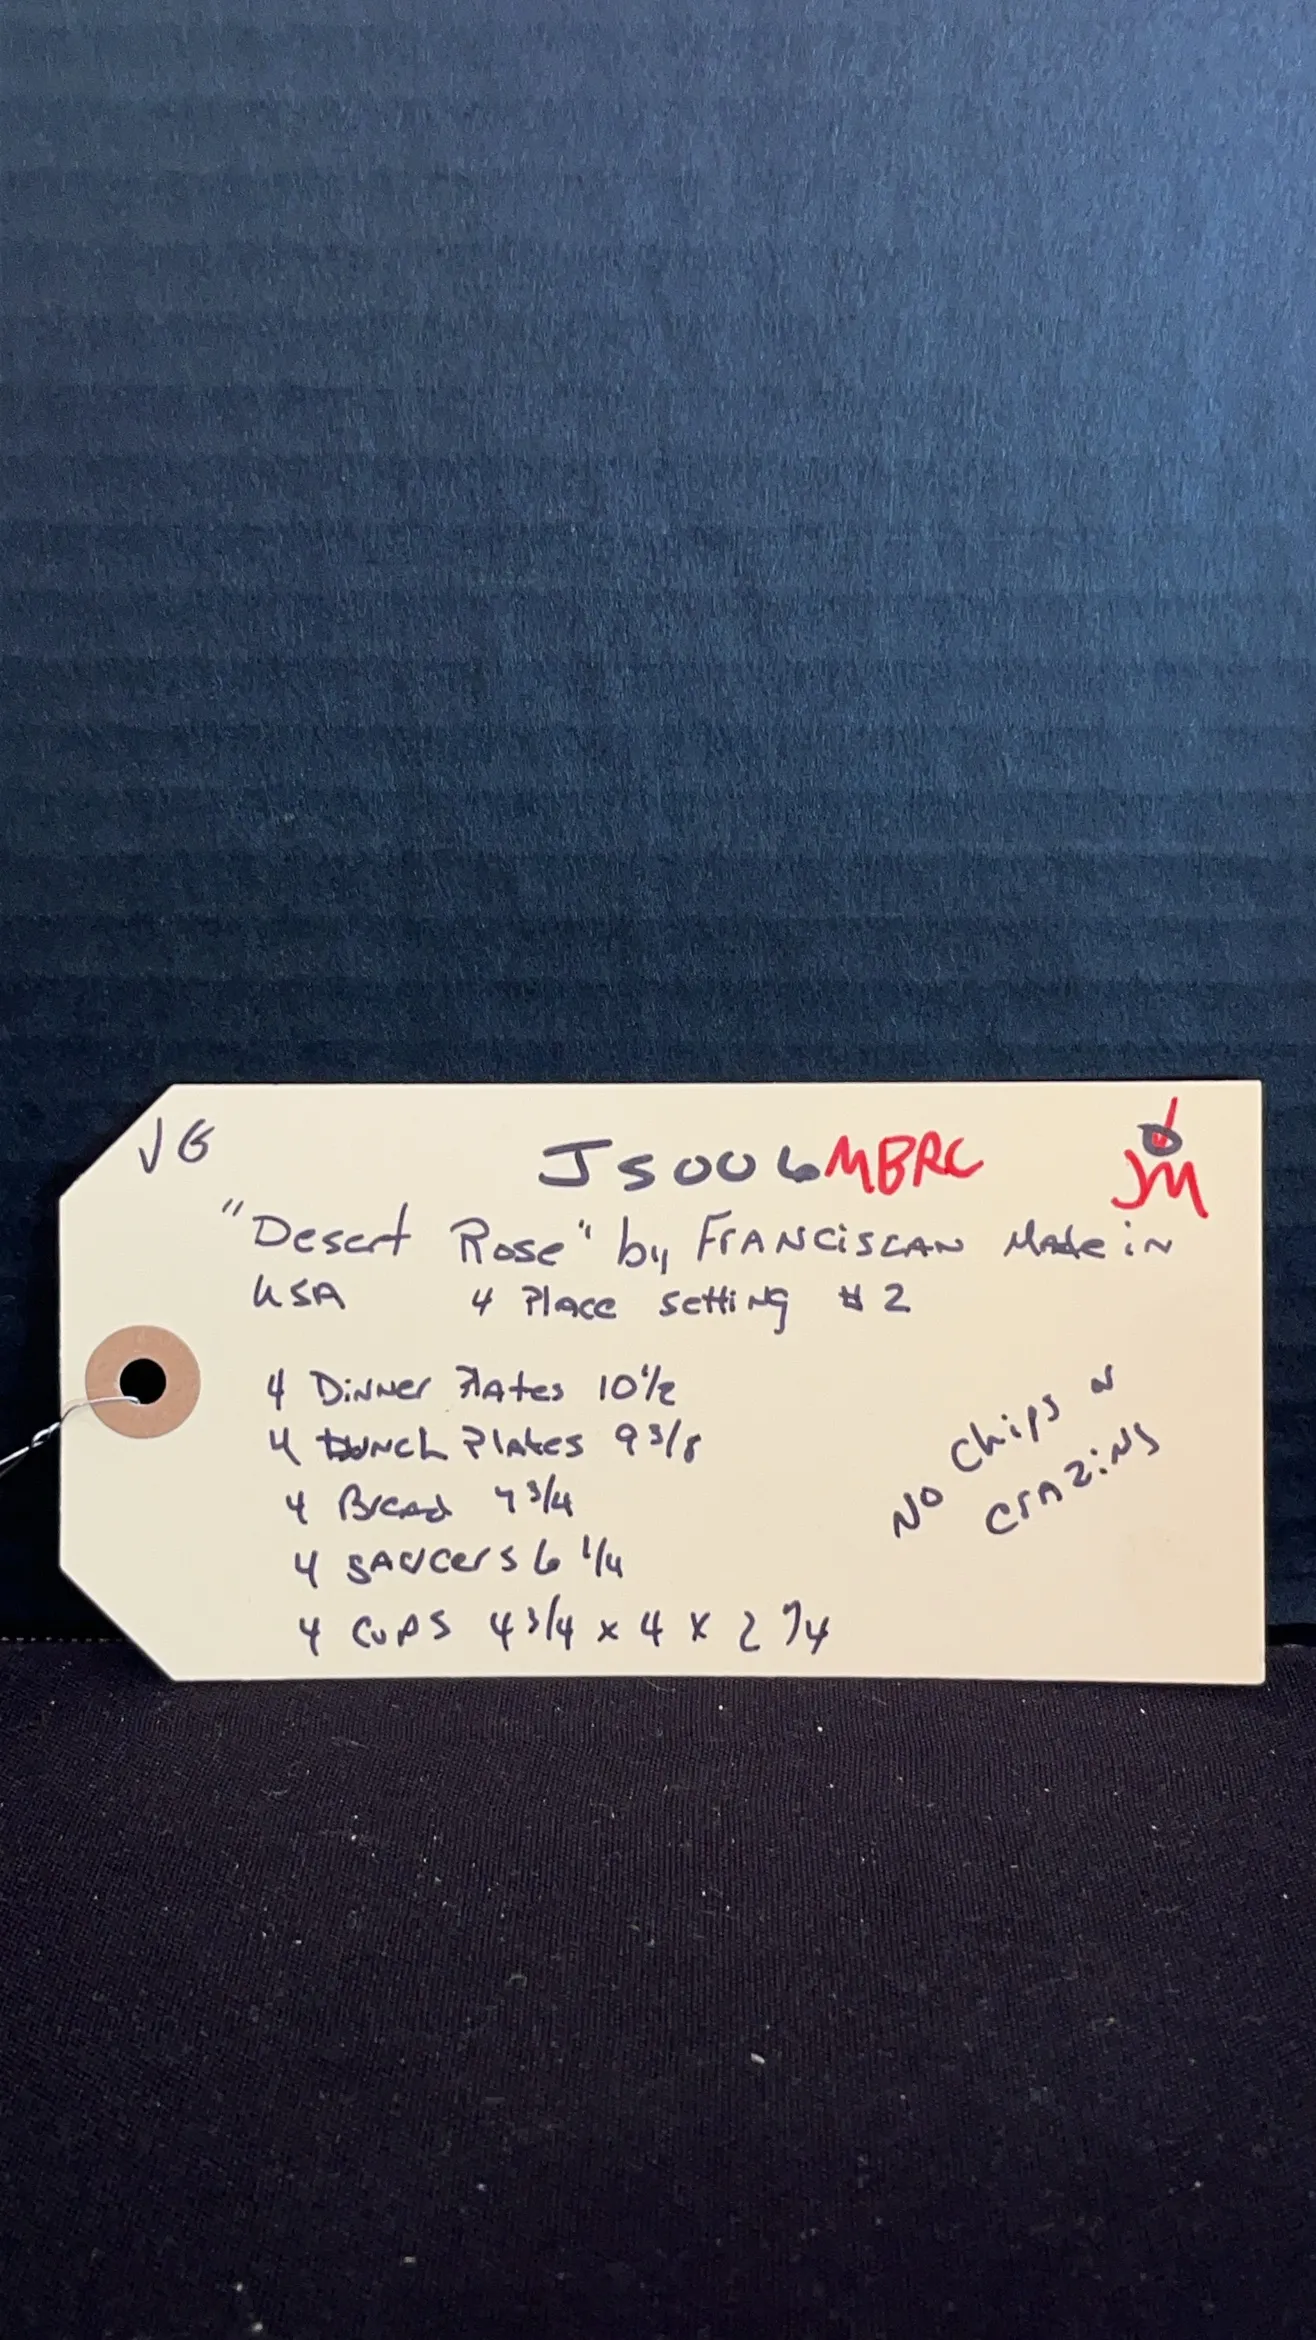 VG JS006MBRC JM
"Desert Rose" by FRANCiSCAN Made in
USA 4 Place setting #2
4 Dinner Plates 10 1/2
4 Lunch Plates 9 3/8
4 Bread
4 SAUCerS 6 1/4
4 CUPS 4 3/4 x 4 x 2
No Chips or
CrAZiNg